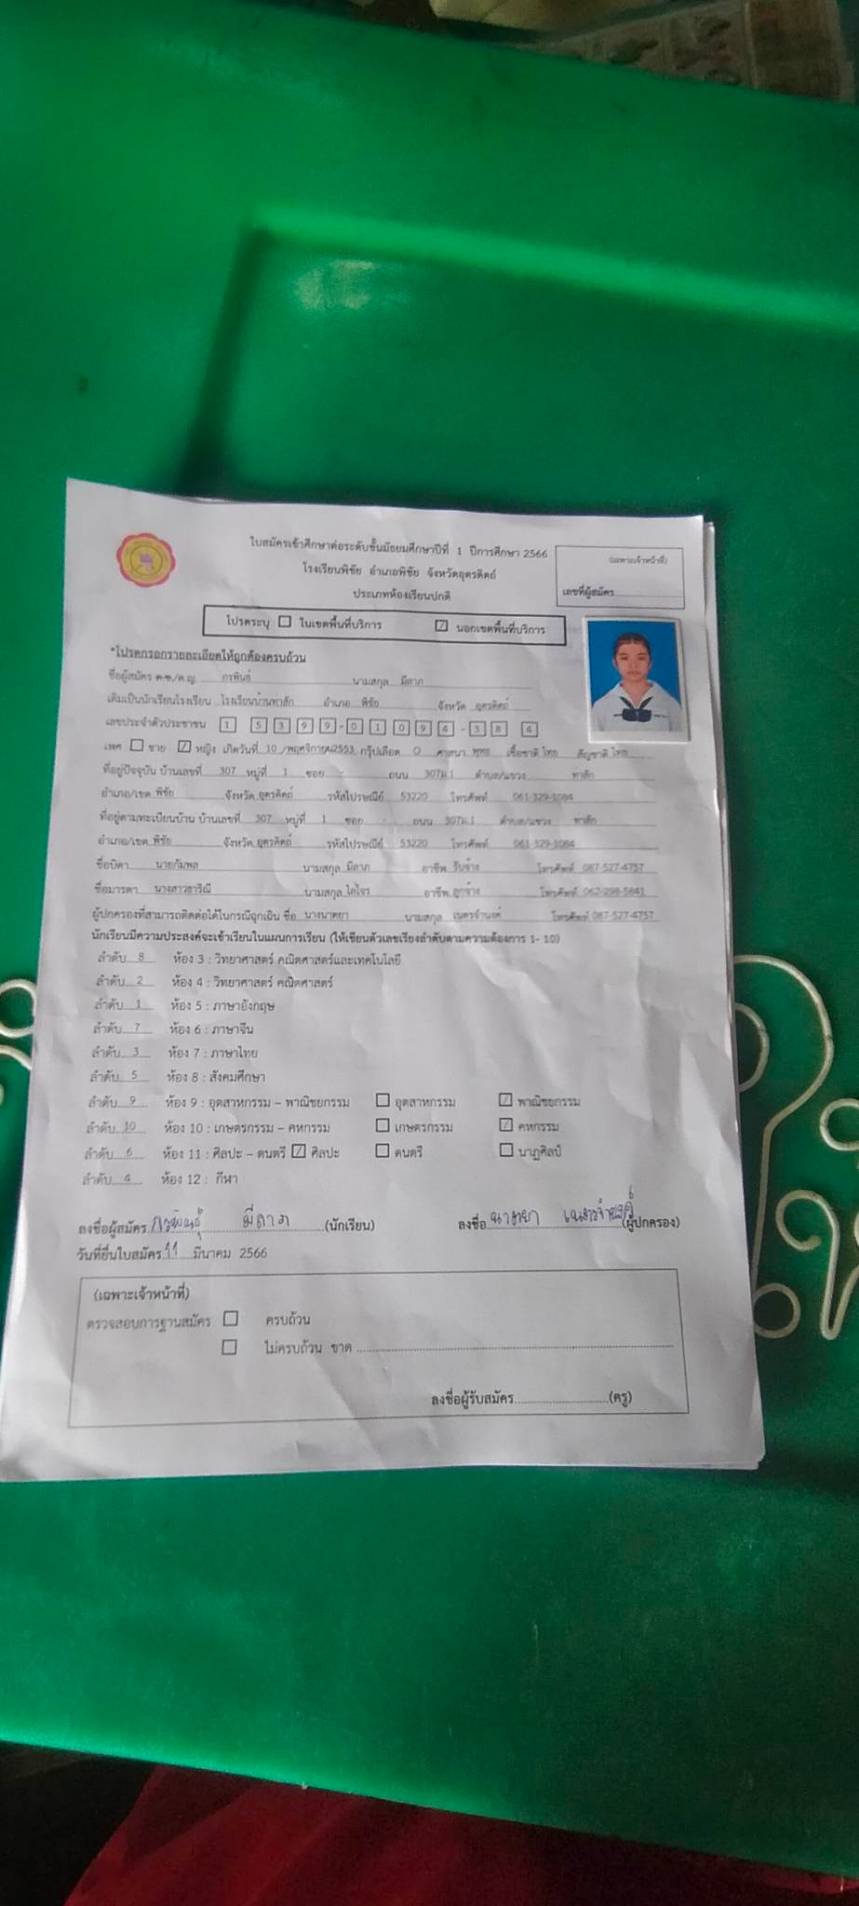 ใบสมัครเข้าศึกษาต่อระดับชั้นมัธยมศึกษาปีที่ 1 ปีการศึกษา 2566
(เฉพาะเจ้าหน้าที่)
โรงเรียนพิชัย อำเภอพิชัย จังหวัดอุตรดิตถ์
ประเภทห้องเรียนปกติ
เลขที่ผู้สมัคร
โปรดระบุ ในเขตพื้นที่บริการ นอกเขตพื้นที่บริการ
*โปรดกรอกรายละเอียดให้ถูกต้องครบถ้วน
ชื่อผู้สมัคร ด.ช./ด.ญ. นามสกุล มีลาภ
เดิมเป็นนักเรียนโรงเรียน อำเภอ พิชัย จังหวัด อุตรดิตถ์
เลขประจำตัวประชาชน
เพศ ชาย หญิง เกิดวันที่ 10 /พฤศจิกายน/2553 กรุ๊ปเลือด O ศาสนา พุทธ เชื้อชาติ ไทย สัญชาติ ไทย
ที่อยู่ปัจจุบัน บ้านเลขที่ 307 หมู่ที่ 1 ซอย - ถนน ตำบล/แขวง ท่าสัก
อำเภอ/เขต พิชัย จังหวัด อุตรดิตถ์ รหัสไปรษณีย์ 53220 โทรศัพท์ 061-329-1084
ที่อยู่ตามทะเบียนบ้าน บ้านเลขที่ 307 หมู่ที่ 1 ซอย - ถนน ตำบล/แขวง ท่าสัก
อำเภอ/เขต พิชัย จังหวัด อุตรดิตถ์ รหัสไปรษณีย์ 53220 โทรศัพท์ 061-329-1084
ชื่อบิดา นายกัมพล นามสกุล มีลาภ อาชีพ รับจ้าง โทรศัพท์ 087-527-4757
ชื่อมารดา นามสกุล อาชีพ ลูกจ้าง โทรศัพท์
ผู้ปกครองที่สามารถติดต่อได้ในกรณีฉุกเฉิน ชื่อ นามสกุล โทรศัพท์ 087-527-4757
นักเรียนมีความประสงค์จะเข้าเรียนในแผนการเรียน (ให้เขียนตัวเลขเรียงลำดับตามความต้องการ 1- 10)
ลำดับ 8 ห้อง 3 : วิทยาศาสตร์ คณิตศาสตร์และเทคโนโลยี
ลำดับ 2 ห้อง 4 : วิทยาศาสตร์ คณิตศาสตร์
ลำดับ 1 ห้อง 5 : ภาษาอังกฤษ
ลำดับ 7 ห้อง 6 : ภาษาจีน
ลำดับ 3 ห้อง 7 : ภาษาไทย
ลำดับ 5 ห้อง 8 : สังคมศึกษา
ลำดับ 9 ห้อง 9 : อุตสาหกรรม – พาณิชยกรรม อุตสาหกรรม พาณิชยกรรม
ลำดับ 10 ห้อง 10 : เกษตรกรรม – คหกรรม เกษตรกรรม คหกรรม
ลำดับ 6 ห้อง 11 : ศิลปะ – ดนตรี ศิลปะ ดนตรี นาฏศิลป์
ลำดับ 4 ห้อง 12 : กีฬา
ลงชื่อผู้สมัคร มีลาภ (นักเรียน) ลงชื่อ (ผู้ปกครอง)
วันที่ยื่นใบสมัคร 11 มีนาคม 2566
(เฉพาะเจ้าหน้าที่)
ตรวจสอบการฐานสมัคร ครบถ้วน
ไม่ครบถ้วน ขาด
ลงชื่อผู้รับสมัคร (ครู)